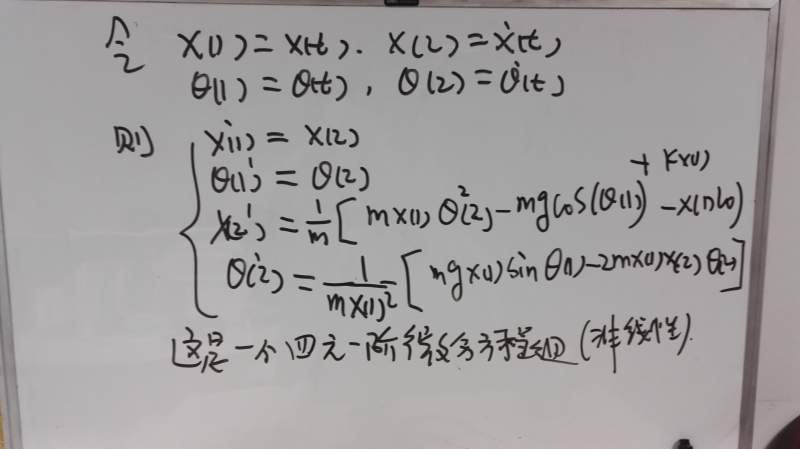 令 x(1)=x(t), x(2)=ẋ(t),
θ(1)=θ(t), θ(2)=θ̇(t),
则 ẋ(1)=x(2)
θ̇(1)=θ(2)
+kx(1)
ẋ(2)=1/m[mx(1)θ²(2)-mgcos(θ(1))-x(1)
θ̇(2)=1/(mx(1)²)[mgx(1)sinθ(1)-2mx(1)x(2)θ(2)]
这是一个四元一阶微分方程组(非线性).